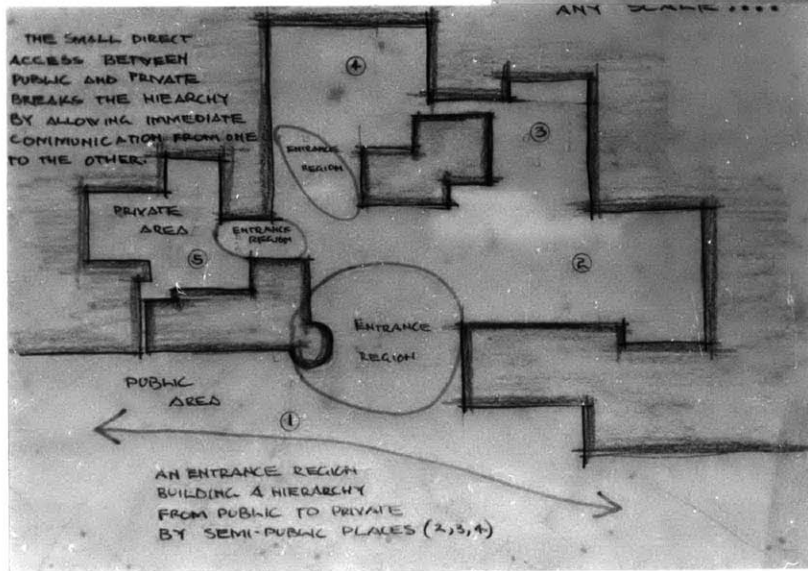 ANY SCALE....
THE SMALL DIRECT
ACCESS BETWEEN
PUBLIC AND PRIVATE
BREAKS THE HIEARCHY
BY ALLOWING IMMEDIATE
COMMUNICATION FROM ONE
TO THE OTHER.
4
3
ENTRANCE
REGION
PRIVATE
AREA
ENTRANCE
REGION
5
2
ENTRANCE
REGION
PUBLIC
AREA
1
AN ENTRANCE REGION
BUILDING A HIERARCHY
FROM PUBLIC TO PRIVATE
BY SEMI-PUBLIC PLACES (2,3,4)